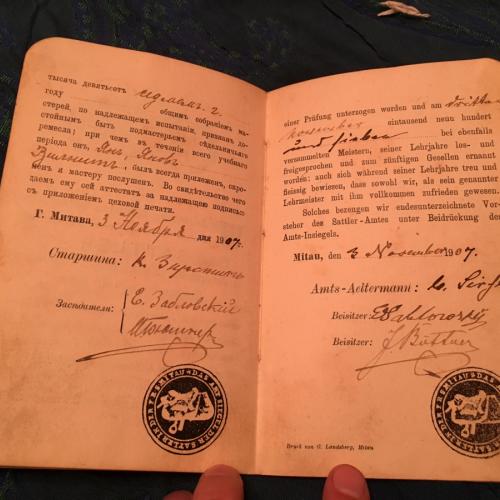 тысяча девятьсотъ седьмомъ г.
году общимъ собранiемъ ма-
стерей, по надлежащемъ испытанiи, признанъ до-
стойнымъ быть подмастерьемъ сѣдельнаго
ремесла; при чемъ въ теченiи всего учебнаго
перiода онъ, Янъ, Яковъ
былъ всегда прилеженъ, скро-
менъ и мастеру послушенъ. Во свидѣтельство чего
даемъ ему сей аттестатъ за надлежащею подписью
съ приложенiемъ цеховой печати.
Г. Митава, 3 Ноября дня 1907 г.
Старшина: К.
Засѣдатели: Е. Забловскiй
einer Prüfung unterzogen worden und am dritten
November eintausend neun hundert
und sieben bei ebenfalls
versammelten Meistern, seiner Lehrjahre los- und
freigesprochen und zum zünftigen Gesellen ernannt
worden; auch sich während seiner Lehrjahre treu und
fleissig bewiesen, dass sowohl wir, als sein genannter
Lehrmeister mit ihm vollkommen zufrieden gewesen.
Solches bezeugen wir endesunterzeichnete Vor-
steher des Sattler-Amtes unter Beidrückung des
Amts-Insiegels.
Mitau, den 3 November 1907.
Amts-Aeltermann:
Beisitzer:
Beisitzer: J. Büttner
Druck von G. Landsberg, Mitau